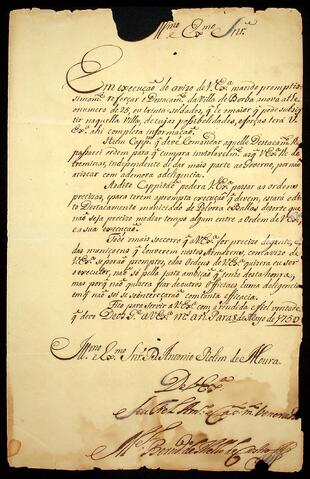 Illmo e Exmo Snr.
Em execução do avizo de V. Exa mando promptis
simamte reforçar o Destacamto da Villa de Borba a nova athe
o numero de 25, ou trinta soldados, q he o maior q póde subsis
tir naquella Villa, de cujas possibilidades, e forças terá V.
Exa ahi completa informação.
Ao Capm q deve Comandar aquelle Destacamto
passarei ordem para q cumpra inviolavelmte o q V. Exa lhe de
treminar, independente de dar mais parte ao Governo, por não
ariscar com a demora a deligencia.
Ao dito Cappitão poderá V. Exa passar as ordens
precizas, para terem aprompta execução q devem, e está o di
to Destacamto municiado de Polvora e Ballas de sorte que
não seja precizo mediar tempo algum entre a ordem de V. Exa
e a sua execução.
Todo o mais socorro q a V. Exa for precizo de gente, e
das muniçoens q houverem nestes Armazens, com avizo de
V. Exa se porão promptos, e das ordens de V. Exa quizera eu ser
o executor, não só pella justa ambição q tenho desta honra,
mas porq não quizera fiar de outro Official huma deligencia
em q não sei se se intereçará com tanta efficacia.
Fico para servir a V. Exa com a rendida, e fiel vontade
q devo. Deos Gde a V. Exa ms ans. Pará 8 de Mayo de 1750
Illmo e Exmo Snr. D. Antonio Rolim de Moura
De V. Exa
Mel Bernardo de Mello de Castro